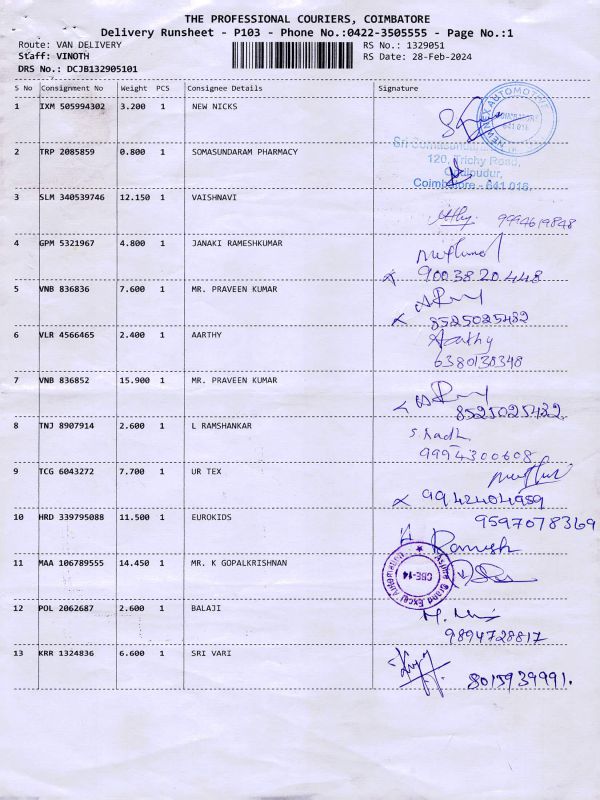 THE PROFESSIONAL COURIERS, COIMBATORE
Delivery Runsheet - P103 - Phone No.:0422-3505555 - Page No.:1
Route: VAN DELIVERY
RS No.: 1329051
Staff: VINOTH
RS Date: 28-Feb-2024
DRS No.: DCJB132905101
S No Consignment No Weight PCS Consignee Details Signature
1 IXM 505994302 3.200 1 NEW NICKS
NEW NEX AUTOMOTIVE
COIMBATORE
641 015
2 TRP 2085859 0.800 1 SOMASUNDARAM PHARMACY
120, Trichy Road,
Coimbatore - 641 016.
3 SLM 340539746 12.150 1 VAISHNAVI
9994619848
4 GPM 5321967 4.800 1 JANAKI RAMESHKUMAR
9003820448
5 VNB 836836 7.600 1 MR. PRAVEEN KUMAR
8525025482
6 VLR 4566465 2.400 1 AARTHY
Aarthy
6380138348
7 VNB 836852 15.900 1 MR. PRAVEEN KUMAR
8525025422
8 TNJ 8907914 2.600 1 L RAMSHANKAR
9994300608
9 TCG 6043272 7.700 1 UR TEX
9942404959
10 HRD 339795088 11.500 1 EUROKIDS
9597078369
Ramesh
11 MAA 106789555 14.450 1 MR. K GOPALKRISHNAN
CBE-14
12 POL 2062687 2.600 1 BALAJI
9894728817
13 KRR 1324836 6.600 1 SRI VARI
8015939991.